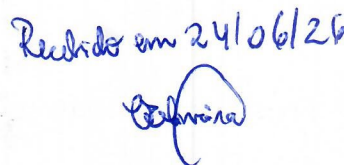 Recebido em 24/06/26